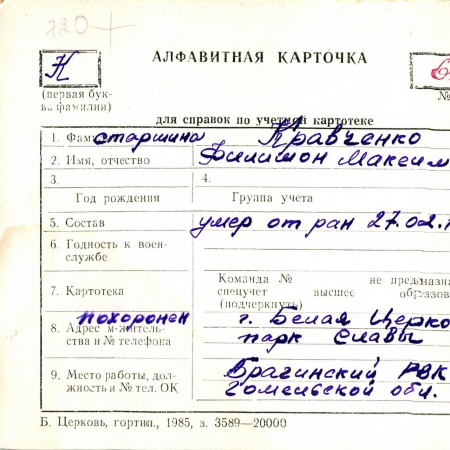 720
АЛФАВИТНАЯ КАРТОЧКА
К
(первая бук-
ва фамилии)
№
для справок по учетной картотеке
1. Фами старшина Кравченко
2. Имя, отчество Филимон Максим
3. 4.
Год рождения Группа учета
5. Состав умер от ран 27.02.
6. Годность к воен-
службе
Команда № не предназна
7. Картотека спецучет высшее образов
(подчеркнуть)
похоронен г. Белая Церко
8. Адрес м-житель-
ства и № телефона парк Славы
9. Место работы, дол-
жность и № тел. ОК
Брагинский РВК
Гомельской обл.
Б. Церковь, гортип., 1985, з. 3589—20000